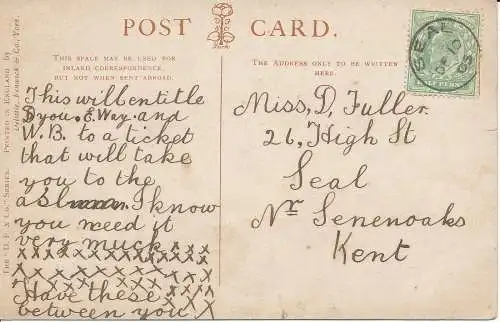 POST CARD.
THIS SPACE MAY BE USED FOR
INLAND CORRESPONDENCE,
BUT NOT WHEN SENT ABROAD.
THE ADDRESS ONLY TO BE WRITTEN
HERE.
SEAL
HALF PENNY
This will entitle
D you. E. Way. and
W. B. to a ticket
that will take
you to the
I know
you need it
very much x x x
x x x x x x x x x x
x x x x x x x x x x
Have these x x x
between you. X
Miss, D, Fuller.
26, High St
Seal
Nr Senenoaks
Kent
THE "D. F. & Co." SERIES. PRINTED IN ENGLAND by
Delittle, Fenwick & Co., York.